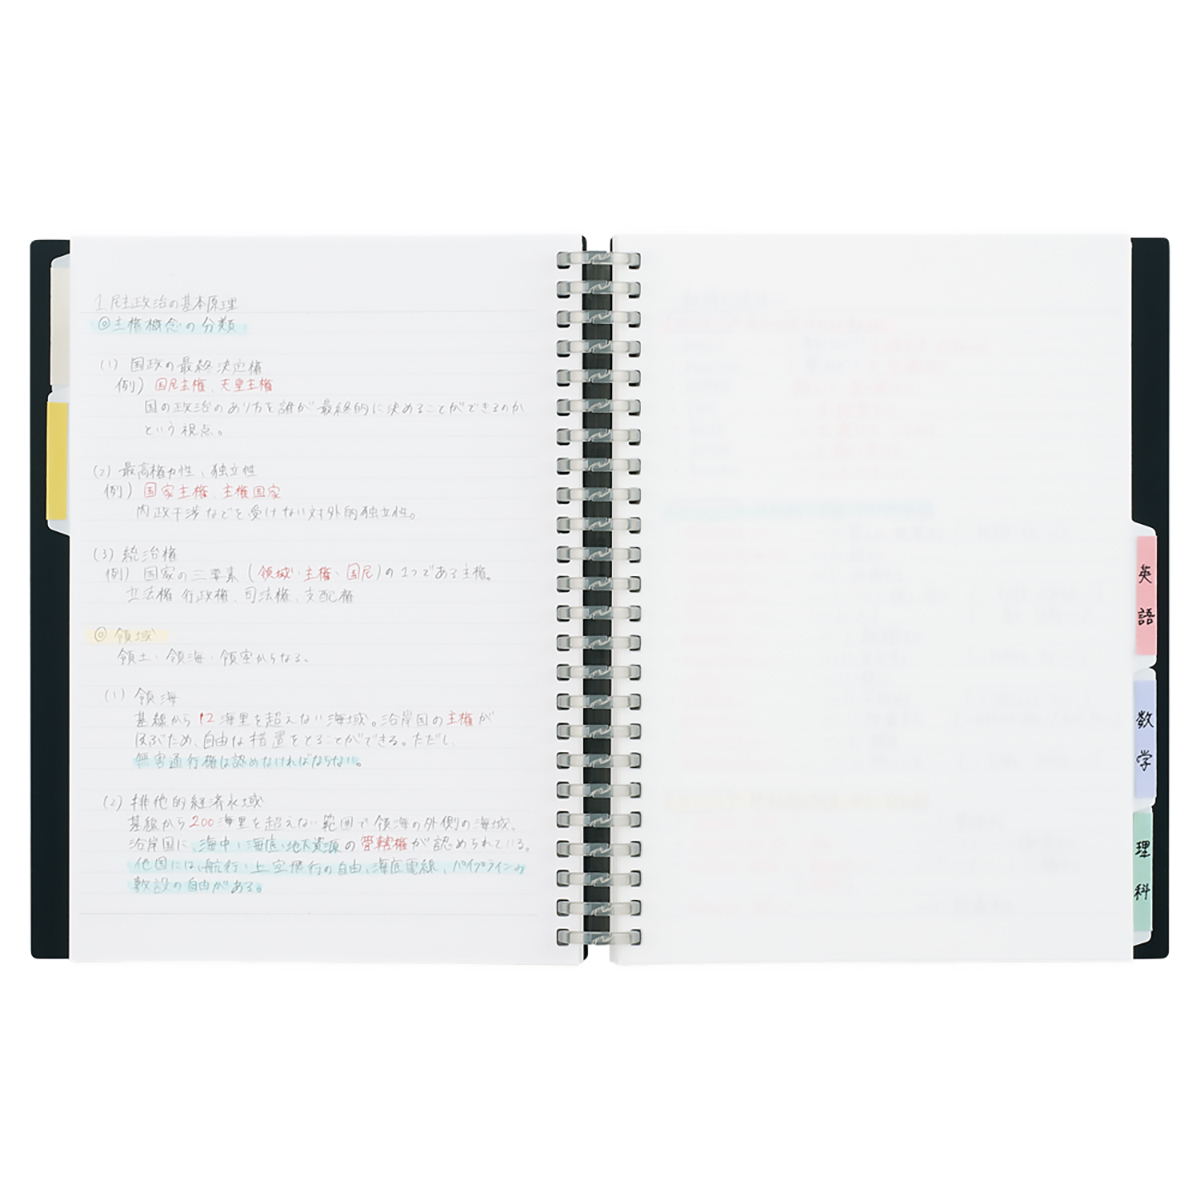 1 民主政治の基本原理
◎主権概念の分類
(1) 国政の最終決定権
例) 国民主権、天皇主権
国の政治のあり方を誰が最終的に決めることができるのか
という視点。
(2) 最高権力性、独立性
例) 国家主権、主権国家
内政干渉などを受けない対外的独立性。
(3) 統治権
例) 国家の三要素 (領域・主権・国民)の1つである主権。
立法権 行政権、司法権、支配権
◎ 領域
領土・領海・領空からなる。
(1) 領海
基線から12海里を超えない海域。沿岸国の主権が
及ぶため、自由な措置をとることができる。ただし、
無害通行権は認めなければならない。
(2) 排他的経済水域
基線から200海里を超えない範囲で領海の外側の海域、
沿岸国に、海中・海底・地下資源の管轄権が認められている。
他国には、航行・上空飛行の自由、海底電線、パイプラインの
敷設の自由がある。
英語
数学
理科